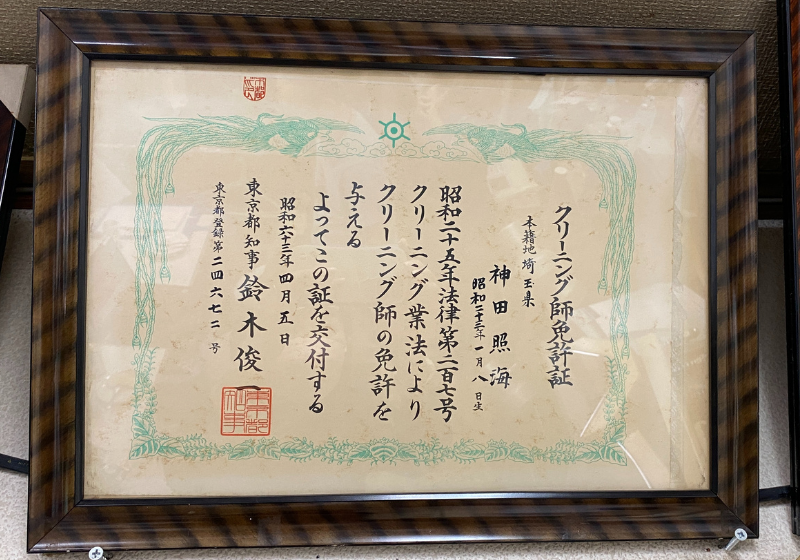 クリーニング師免許証
本籍地 埼玉県
神田照海
昭和二十三年一月八日生
昭和二十五年法律第二百七号
クリーニング業法により
クリーニング師の免許を
与える
よってこの証を交付する
昭和六十三年四月五日
東京都知事 鈴木俊一
東京都登録第二四六七二号